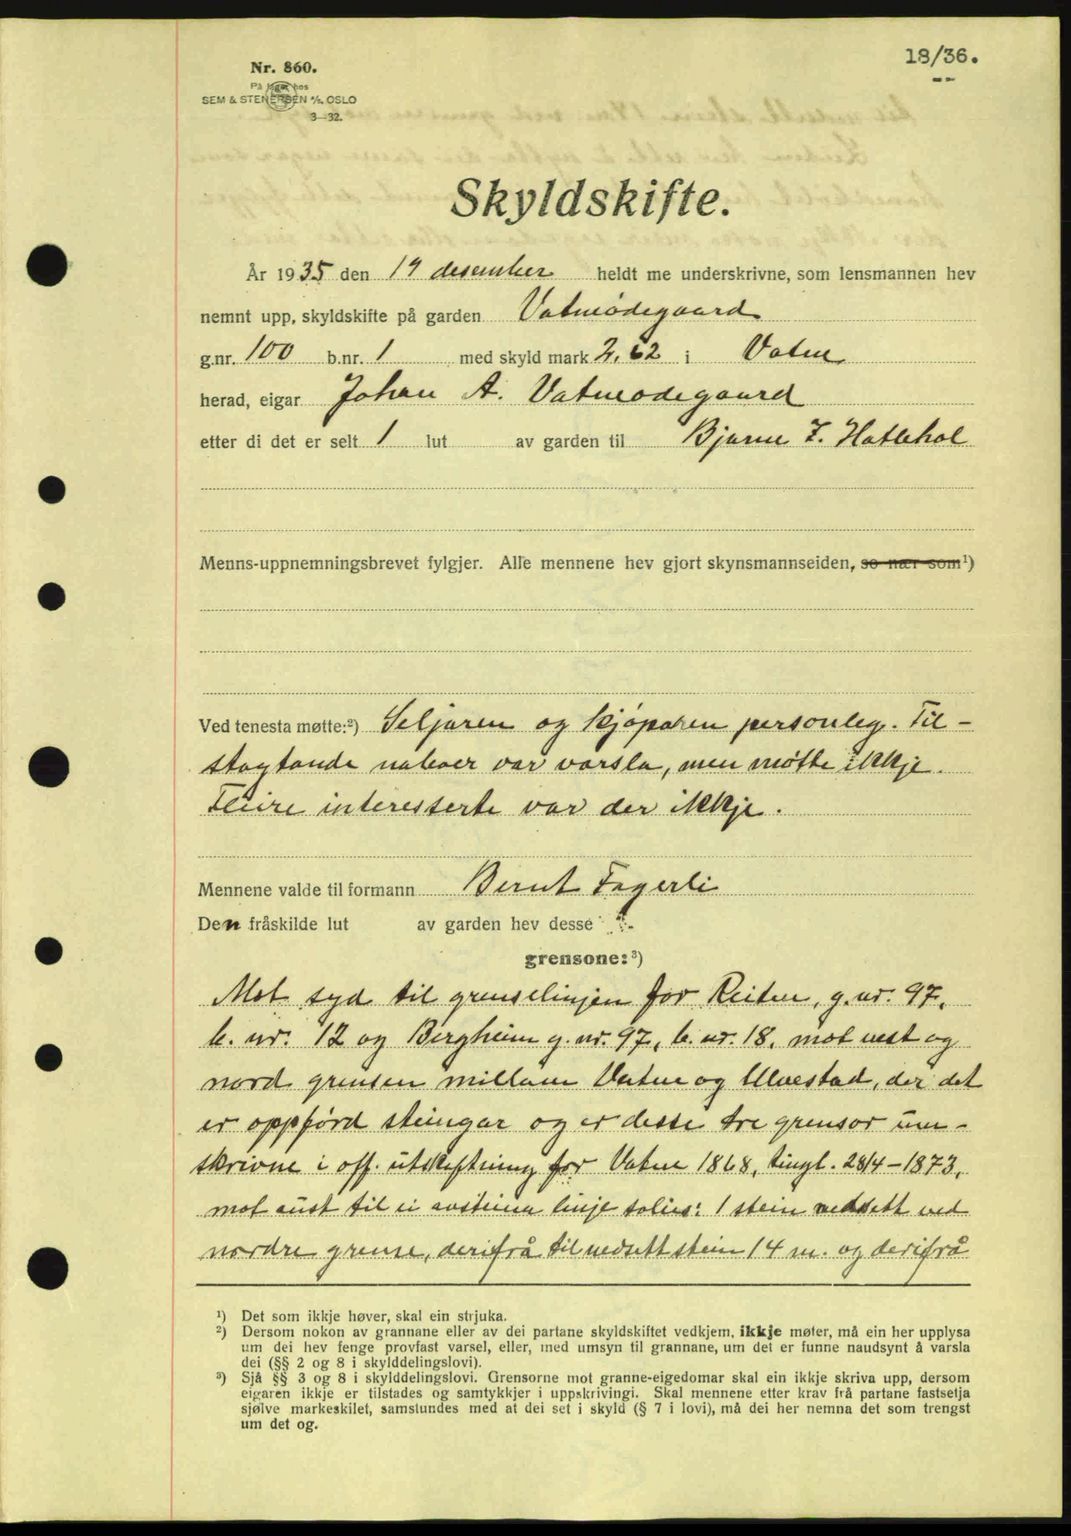 18/36.
Nr. 860.
På lager hos
SEM & STENERSEN A/S, OSLO
3—32.
Skyldskifte.
År 1935 den 17 desember heldt me underskrivne, som lensmannen hev
nemnt upp, skyldskifte på garden Vatneødegaard
g.nr. 100 b.nr. 1 med skyld mark 2,62 i Vatne
herad, eigar Johan A. Vatneødegaard
etter di det er selt 1 lut av garden til Bjarne Z. Hatlehol
Menns-uppnemningsbrevet fylgjer. Alle mennene hev gjort skynsmannseiden, so nær som¹)
Ved tenesta møtte:²) Seljaren og kjóparen personleg. Til-
støytande naboer var varsla, men møtte ikkje.
Fleire interesserte var der ikkje.
Mennene valde til formann Bernt Fagerli
Den fråskilde lut av garden hev desse
grensone:³)
Mot syd til grenselinjen for Reiten, g.nr. 97,
b. nr. 12 og Bergheim g. nr. 97, b. nr. 18, mot vest og
nord grensen millom Vatne og Ulvestad, der det
er oppförd steingar og er desse tre grensor um-
skrivne i off. utskiftning for Vatne 1868, tingl. 28/4-1873,
mot aust til ei avsteina linje solies: 1 stein nedsett ved
nordre grense, derifrå til nedsett stein 14 m. og derifrå
¹) Det som ikkje høver, skal ein strjuka.
²) Dersom nokon av grannane eller av dei partane skyldskiftet vedkjem, ikkje møter, må ein her upplysa
um dei hev fenge provfast varsel, eller, med umsyn til grannane, um det er funne naudsynt å varsla
dei (§§ 2 og 8 i skylddelingslovi).
³) Sjå §§ 3 og 8 i skylddelingslovi. Grensorne mot granne-eigedomar skal ein ikkje skriva upp, dersom
eigaren ikkje er tilstades og samtykkjer i uppskrivingi. Skal mennene etter krav frå partane fastsetja
sjølve markeskilet, samstundes med at dei set i skyld (§ 7 i lovi), må dei her nemna det som trengst
um det og.